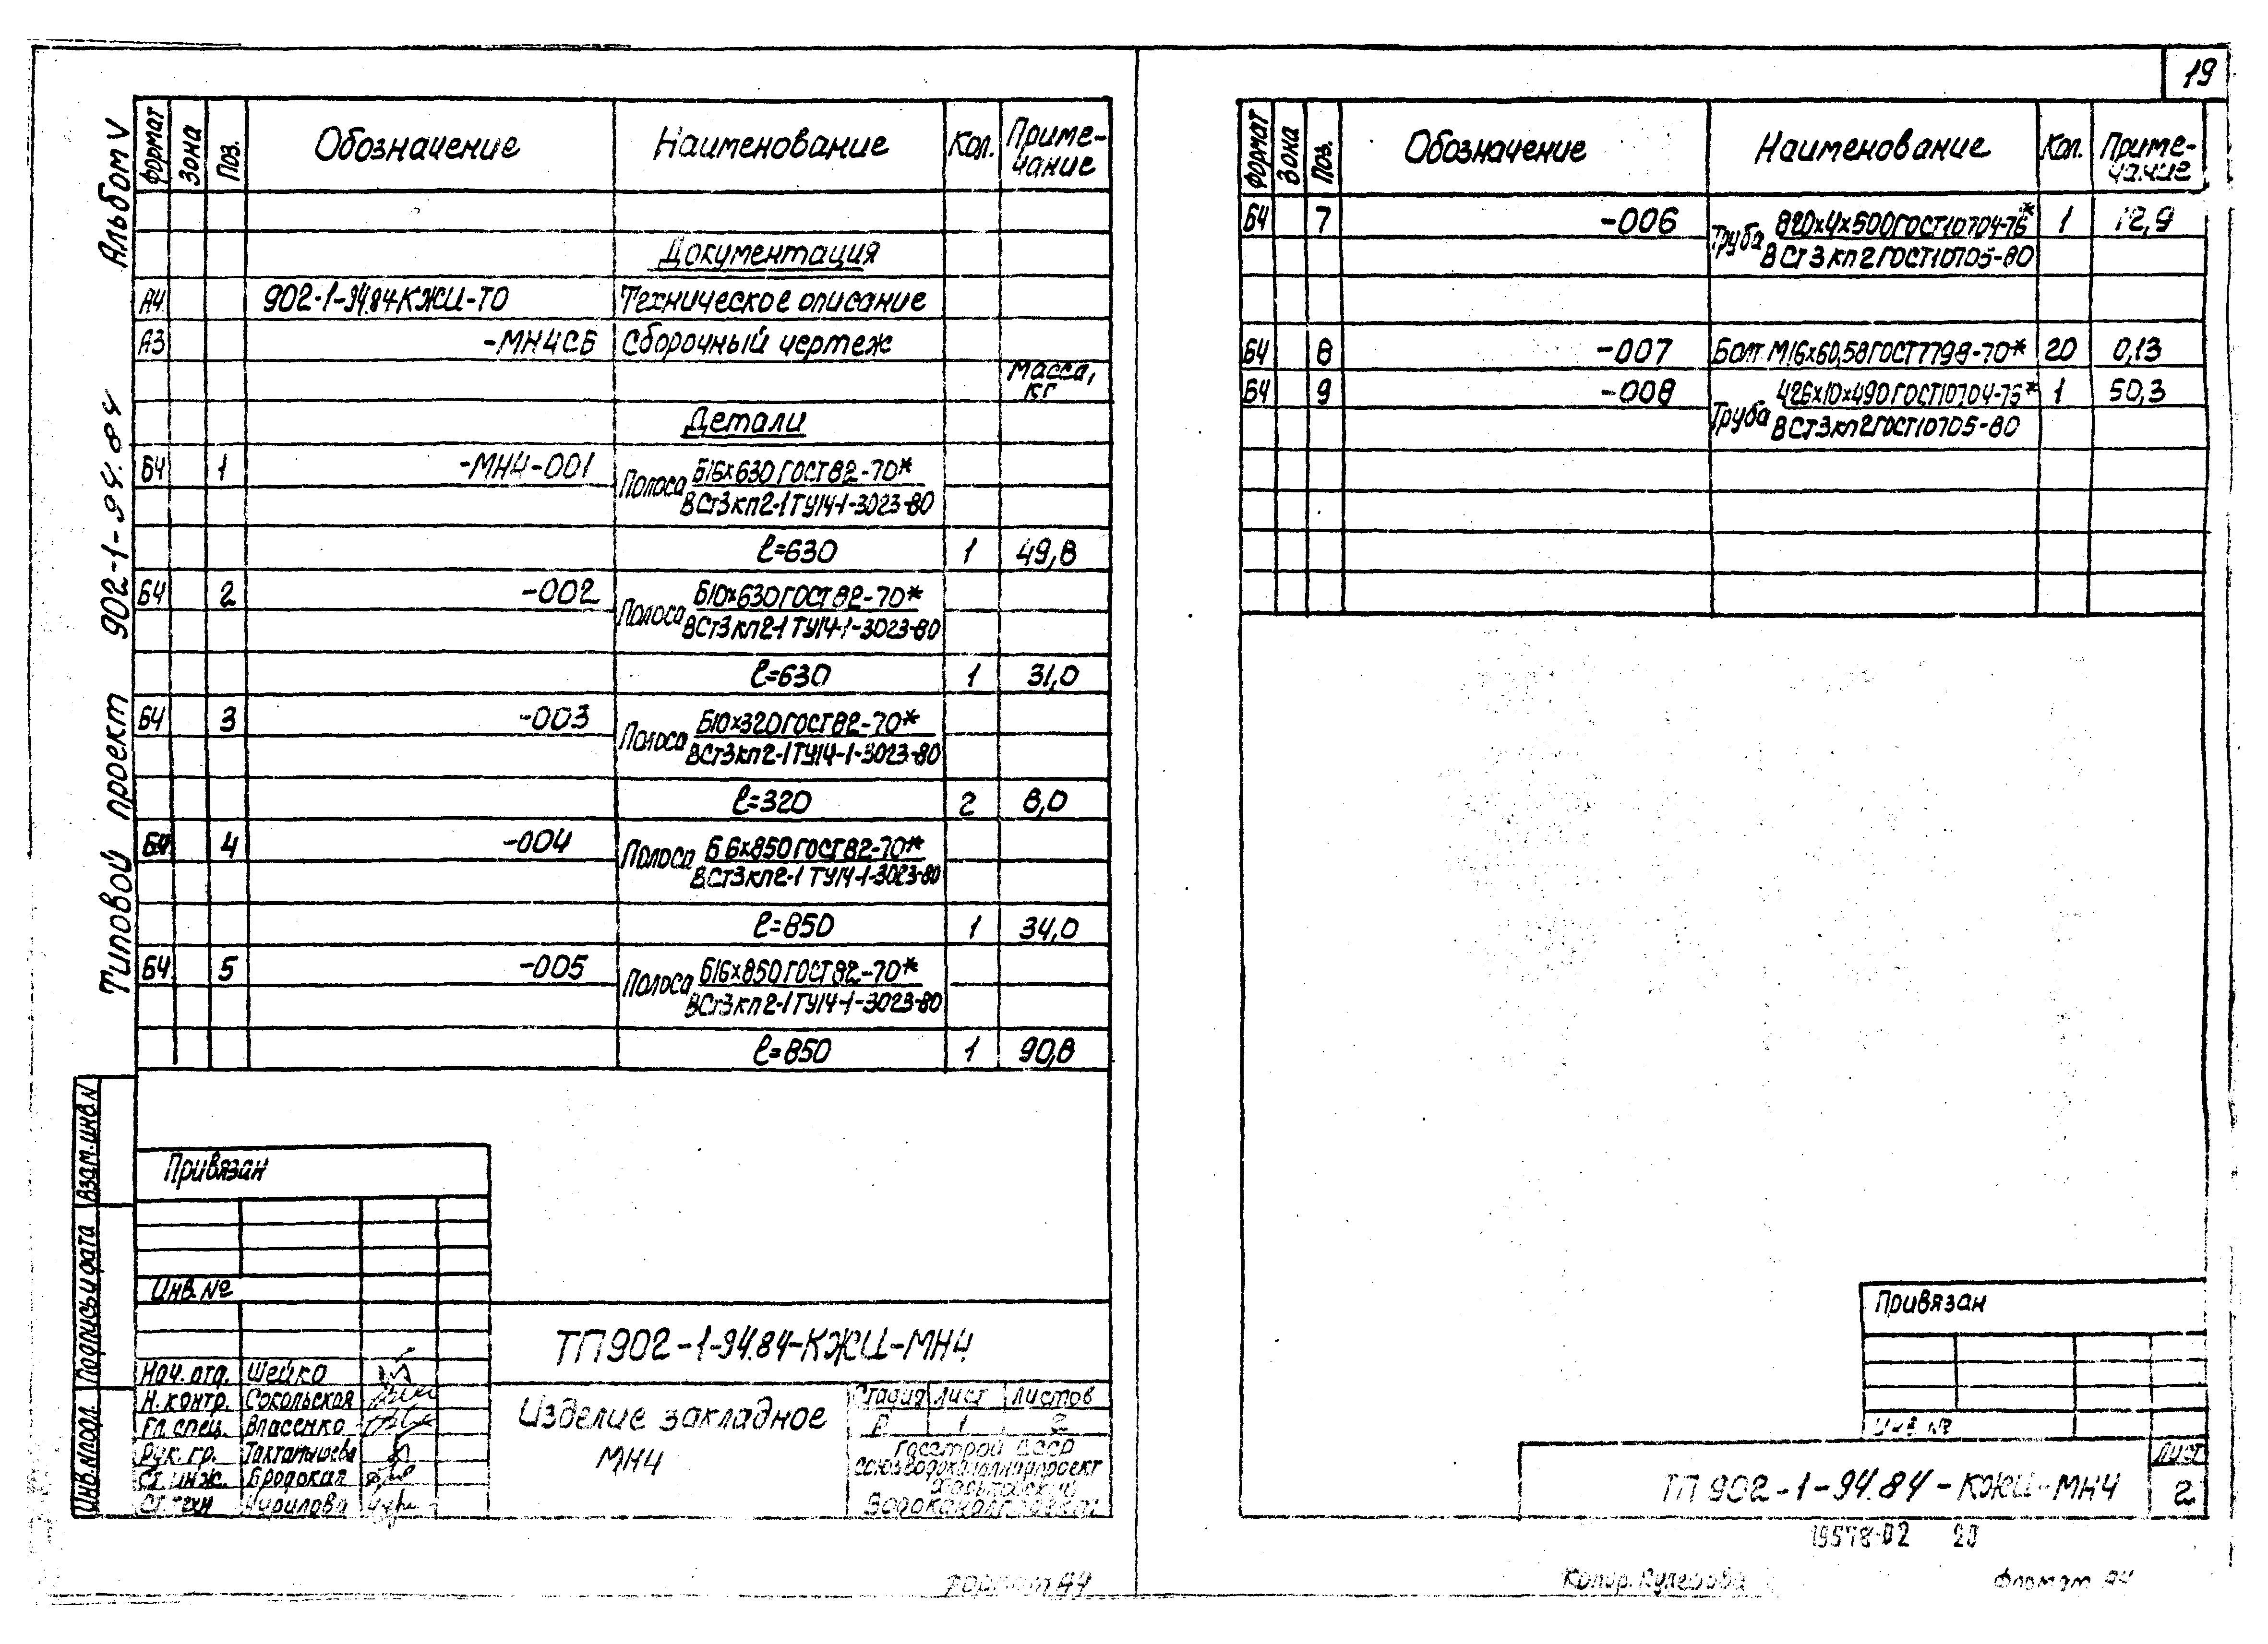 19
Альбом V
Типовой проект 902-1-94.84
Формат Зона Поз. Обозначение Наименование Кол. Приме-
чание
Документация
А4 902-1-94.84КЖИ-ТО Техническое описание
А3 -МН4СБ Сборочный чертеж
Масса,
кг
Детали
БЧ 1 -МН4-001 Полоса Б16х630 ГОСТ 82-70*
ВСт3кп2-1 ТУ14-1-3023-80
ℓ=630 1 49,8
БЧ 2 -002 Полоса Б10х630 ГОСТ 82-70*
ВСт3кп2-1 ТУ14-1-3023-80
ℓ=630 1 31,0
БЧ 3 -003 Полоса Б10х320 ГОСТ 82-70*
ВСт3кп2-1 ТУ14-1-3023-80
ℓ=320 2 8,0
БЧ 4 -004 Полоса Б 6х850 ГОСТ 82-70*
ВСт3кп2-1 ТУ14-1-3023-80
ℓ=850 1 34,0
БЧ 5 -005 Полоса Б16х850 ГОСТ 82-70*
ВСт3кп2-1 ТУ14-1-3023-80
ℓ=850 1 90,8
Взам.инв.N
Подпись и дата
Инв.Nподл.
Привязан
Инв.№
Нач. отд. Шейко
Н. контр. Сокольская
Гл. спец. Власенко
Рук. гр. Тахтамышева
Ст. инж. Бродокал
Ст. техн Чурилова
ТП902-1-94.84-КЖИ-МН4
Изделие закладное
МН4
Стадия Лист Листов
Р 1 2
Госстрой СССР
Союзводоканалниипроект
Харьковский
Водоканалпроект
Формат А4
Формат Зона Поз. Обозначение Наименование Кол. Приме-
чание
БЧ 7 -006 Труба 820х4х500 ГОСТ10704-76* 1 12,9
ВСт3кп2 ГОСТ10705-80
БЧ 8 -007 Болт М16х60,58 ГОСТ7798-70* 20 0,13
БЧ 9 -008 Труба 426х10х490 ГОСТ10704-76* 1 50,3
ВСт3кп2 ГОСТ10705-80
Привязан
Инв. №
ТП 902-1-94.84-КЖИ-МН4
Лист
2
19578-02 20
Копир. Кулешова Формат А4